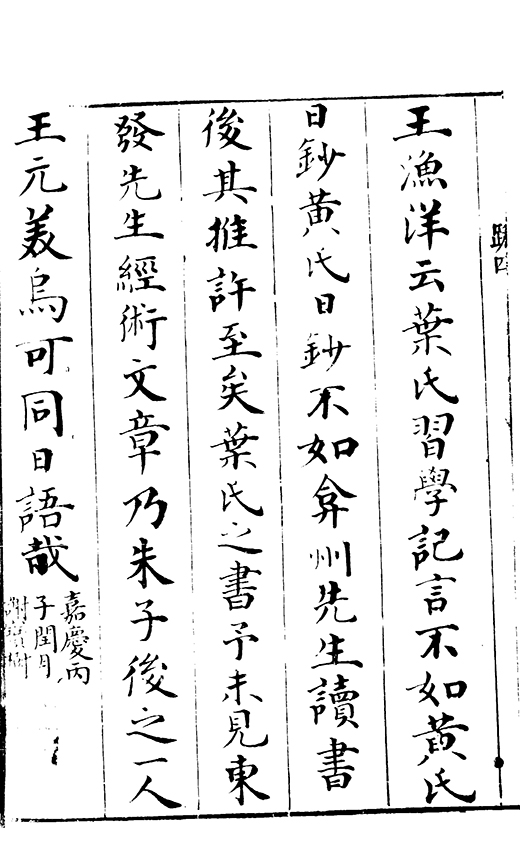 跋四
王漁洋云葉氏習學記言不如黄氏
日鈔黄氏日鈔不如弇州先生讀書
後其推許至矣葉氏之書予未見東
發先生經術文章乃朱子後之一人
王元美烏可同日語哉
嘉慶丙
子閏月
謝寶樹